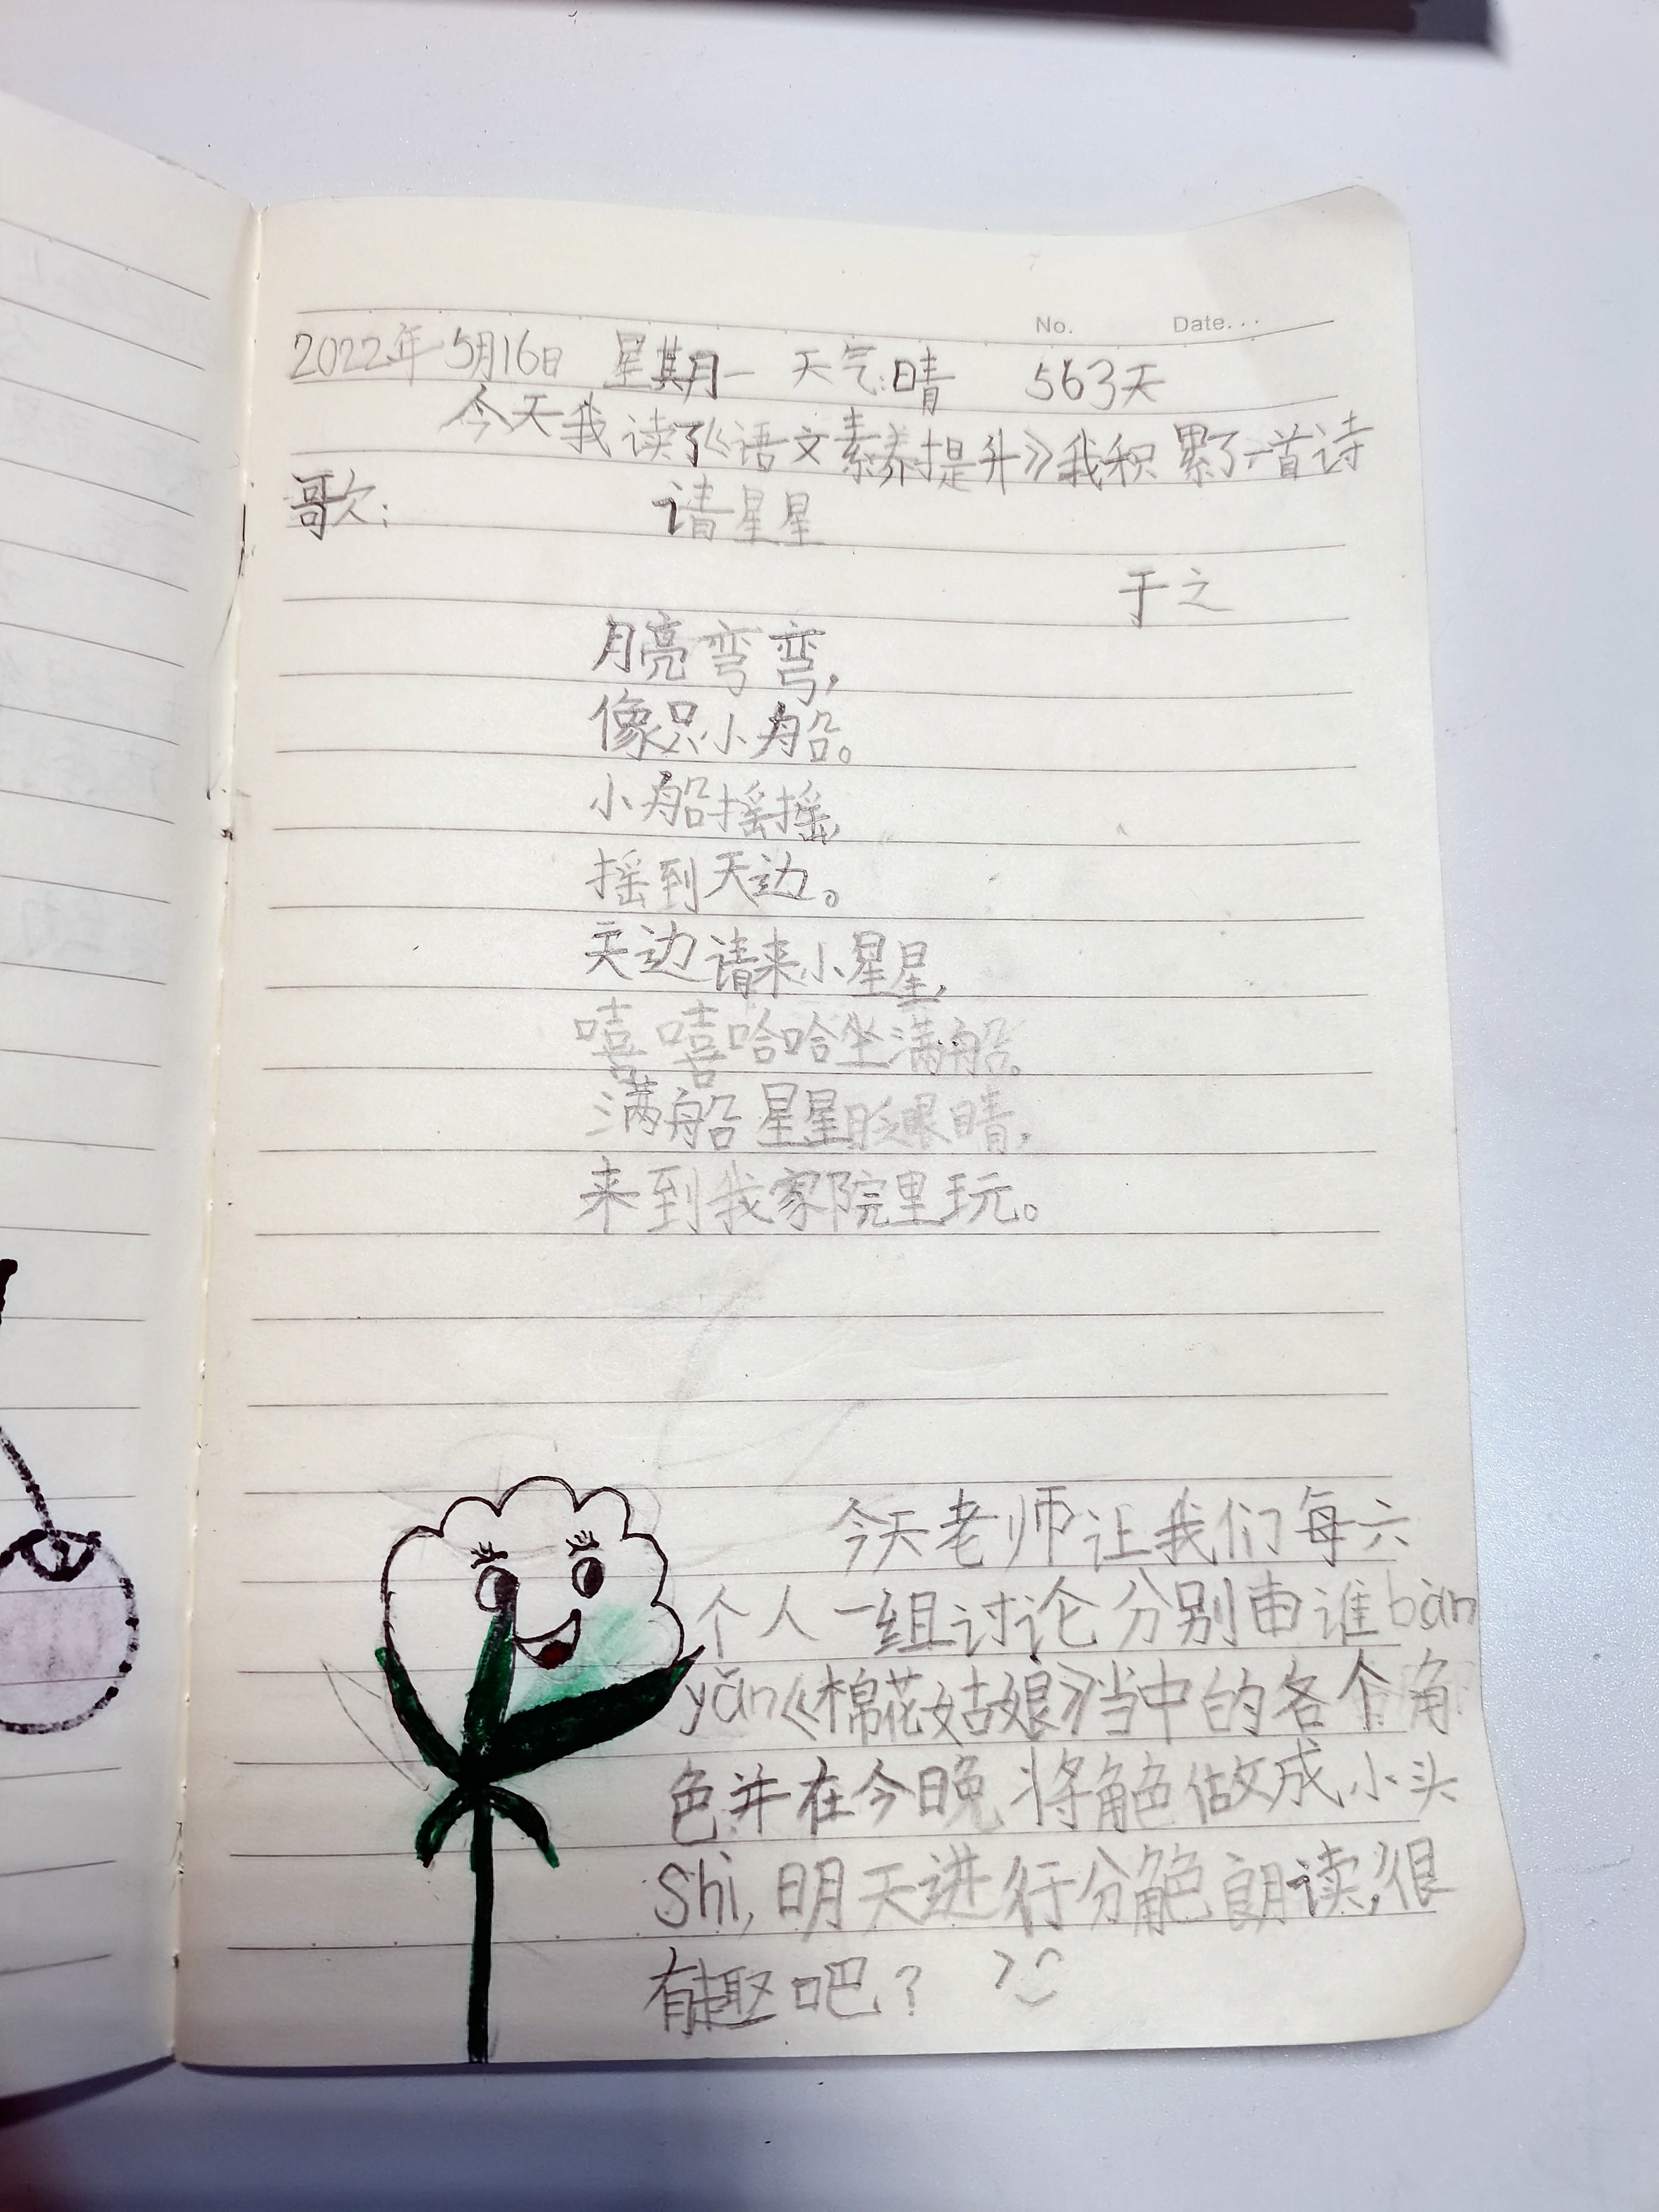 No.    Date...
2022年5月16日 星期一 天气:晴 563天
今天我读了《语文素养提升》我积累了一首诗
歌: 请星星
于之
月亮弯弯,
像只小船。
小船摇摇,
摇到天边。
天边请来小星星,
嘻嘻哈哈坐满船。
满船星星眨眼睛,
来到我家院里玩。
今天老师让我们每六
个人一组讨论分别由谁bàn
yǎn《棉花姑娘》当中的各个角
色并在今晚将角色做成小头
Shì,明天进行分角色朗读,很
有趣吧?